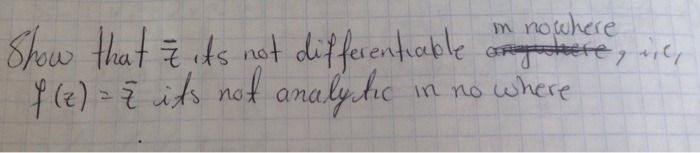 Show that z̄ its not differentiable in nowhere, i,e,
f(z) = z̄ its not analytic in no where